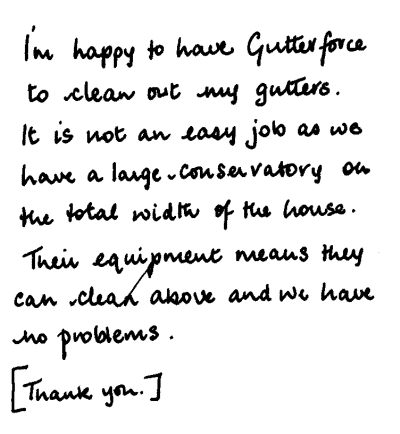 I'm happy to have Gutterforce
to clean out my gutters.
It is not an easy job as we
have a large conservatory on
the total width of the house.
Their equipment means they
can clean above and we have
no problems.
[Thank you.]